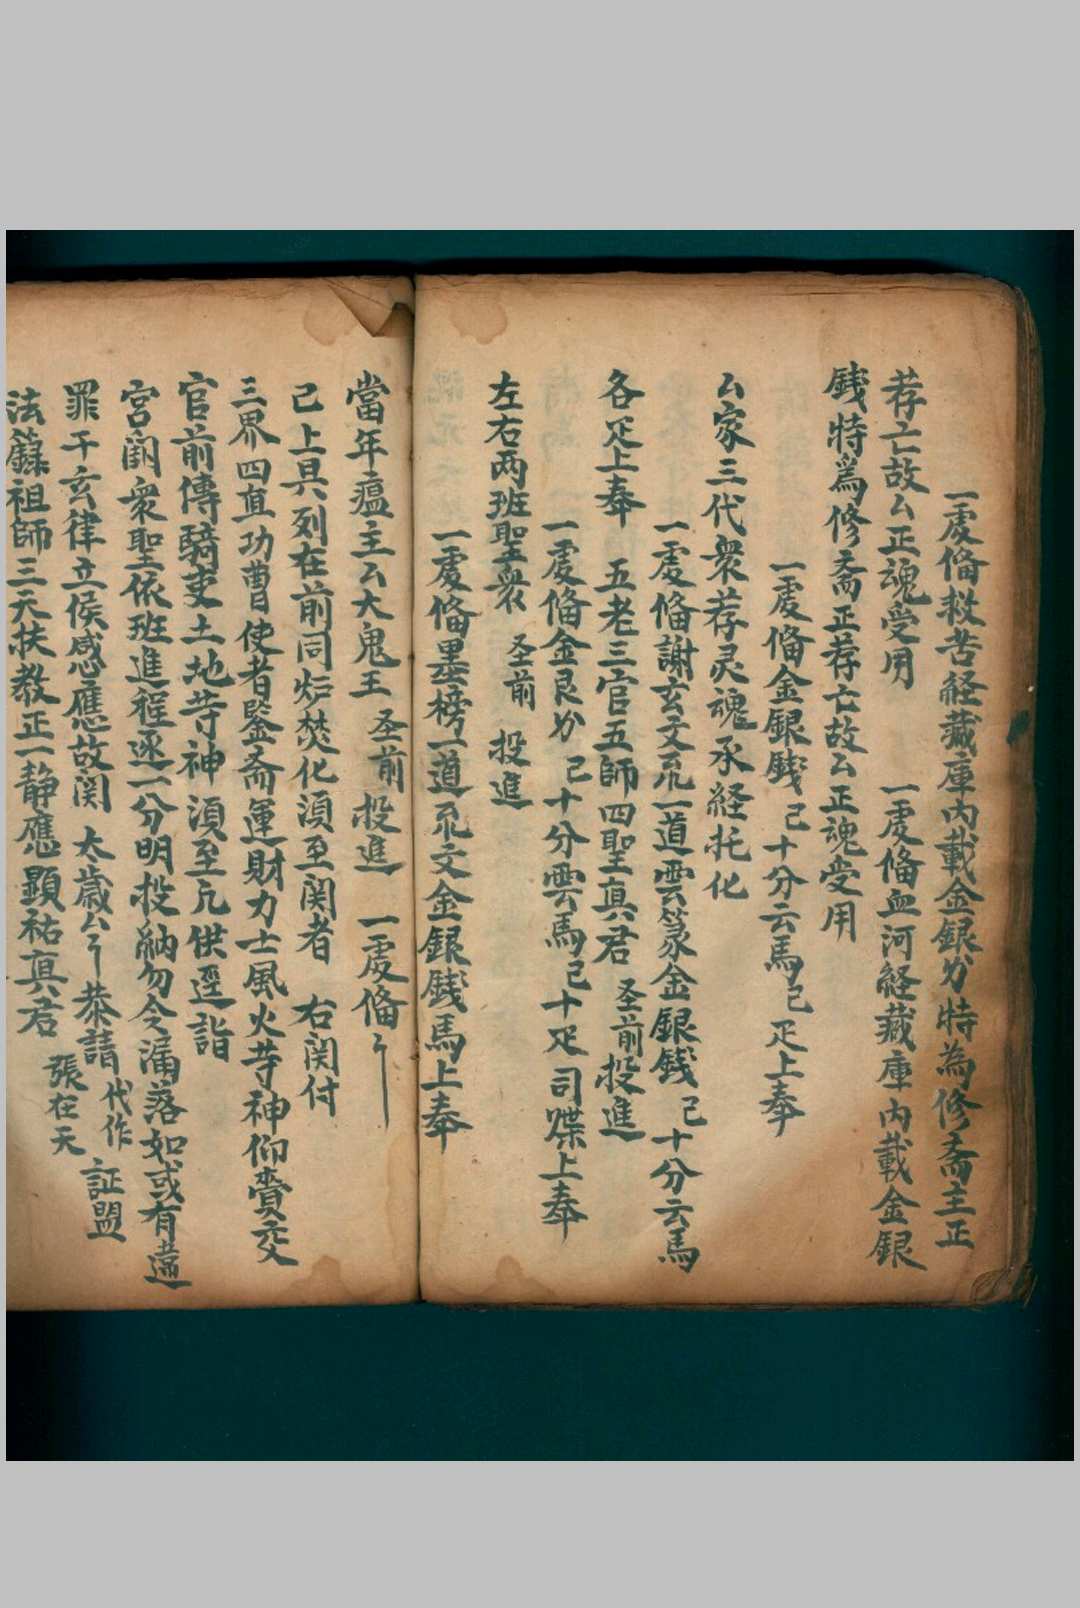 一虔俻救苦経藏庫内載金銀分特為修斋主正
荐亡故厶正魂受用　一虔俻血河経藏庫内載金銀
銭特爲修斋正荐亡故厶正魂受用
一虔俻金銀銭己十分云馬己疋上奉
厶家三代衆荐灵魂承経托化
一虔俻謝玄文疏一道雲篆金銀銭己十分云馬
各疋上奉　五老三官五師四聖真君　圣前投進
一虔俻金艮分己十分雲馬己十疋司牒上奉
左右两班聖衆　圣前　投進
一虔俻墨榜一道疏文金銀銭馬上奉
當年瘟主厶大鬼王　圣前投進　一虔俻
己上具列在前同炉焚化湏至関者　右関付
三界四直功曹使者鍳斋運財力士風火䓁神仰賫交
官前傳騎吏土地䓁神湏至凡供逕詣
宮闕衆聖依班進程逐一分明投納勿令漏落如或有違
罪干玄律立俟感應故関　太歲厶年　恭請　代作　証盟
法籙祖師三天扶教正一静應顕祐真君　張在天